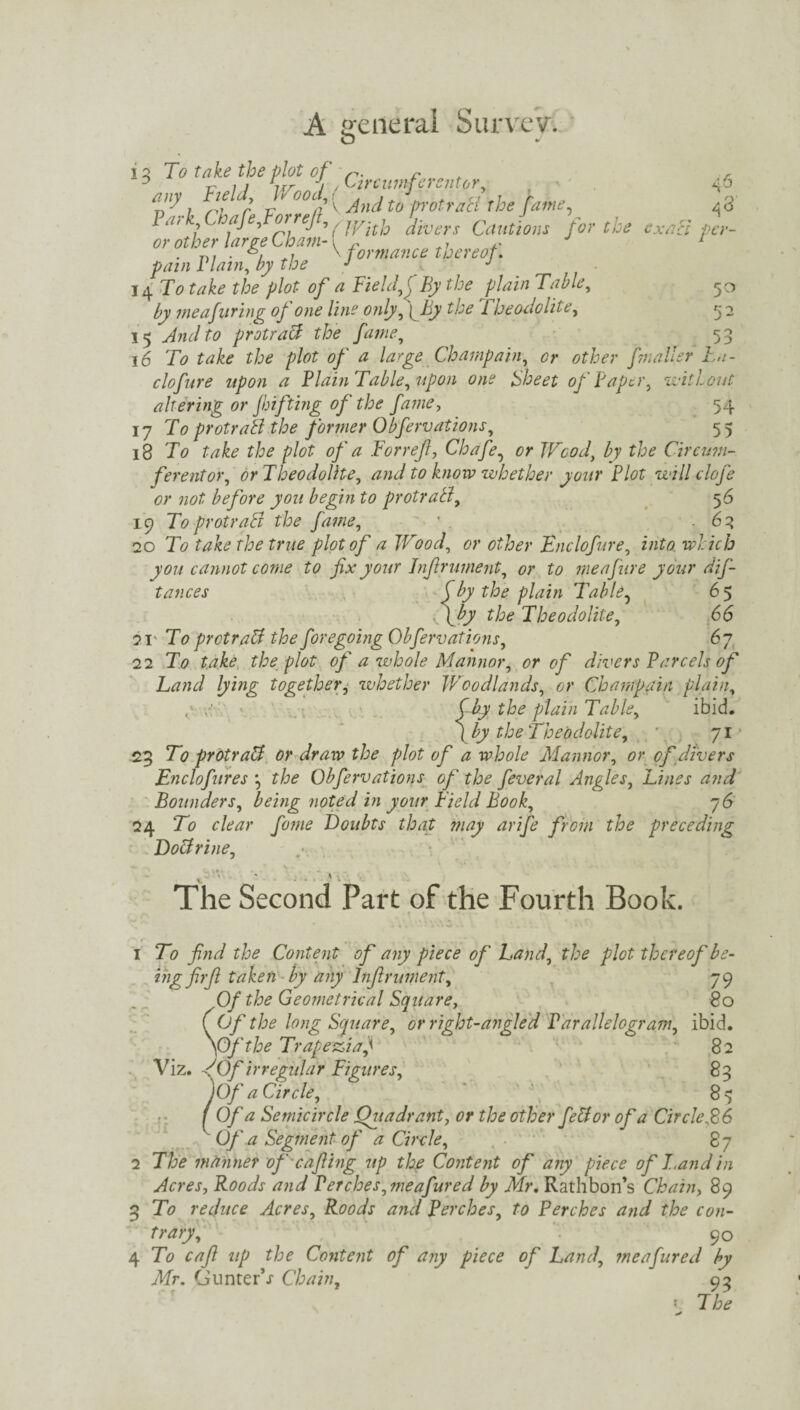 A general Survey.
13 To take the plot of
any Field, Wood,
Park, Chaſe, Forreſt,
or other large Cham-
pain Plain, by the
Circumferentor, 46
And to protract the ſame, 48
With divers Cautions for the exact per-
formance thereof.
14 To take the plot of a Field, By the plain Table, 50
by meaſuring of one line only, By the Theodolite, 52
15 And to protract the ſame, 53
16 To take the plot of a large Champain, or other ſmaller En-
cloſure upon a Plain Table, upon one Sheet of Paper, without
altering or ſhifting of the ſame, 54
17 To protract the former Obſervations, 55
18 To take the plot of a Forreſt, Chaſe, or Wood, by the Circum-
ferentor, or Theodolite, and to know whether your Plot will cloſe
or not before you begin to protract, 56
19 To protract the ſame, 63
20 To take the true plot of a Wood, or other Encloſure, into which
you cannot come to fix your Inſtrument, or to meaſure your diſ-
tances by the plain Table, 65
by the Theodolite, 66
21 To protract the foregoing Obſervations, 67
22 To take the plot of a whole Mannor, or of divers Parcels of
Land lying together, whether Woodlands, or Champain plain,
by the plain Table, ibid.
by the Theodolite, 71
23 To protract or draw the plot of a whole Mannor, or of divers
Encloſures; the Obſervations of the ſeveral Angles, Lines and
Bounders, being noted in your Field Book, 76
24 To clear ſome Doubts that may ariſe from the preceding
Doctrine,
The Second Part of the Fourth Book.
1 To find the Content of any piece of Land, the plot thereof be-
ing firſt taken by any Inſtrument, 79
Of the Geometrical Square, 80
Of the long Square, or right-angled Parallelogram, ibid.
Of the Trapezia, 82
Viz. Of irregular Figures, 83
Of a Circle, 85
Of a Semicircle Quadrant, or the other ſector of a Circle, 86
Of a Segment of a Circle, 87
2 The manner of caſting up the Content of any piece of Land in
Acres, Roods and Perches, meaſured by Mr. Rathbon's Chain, 89
3 To reduce Acres, Roods and Perches, to Perches and the con-
trary, 90
4 To caſt up the Content of any piece of Land, meaſured by
Mr. Gunter's Chain, 93
The